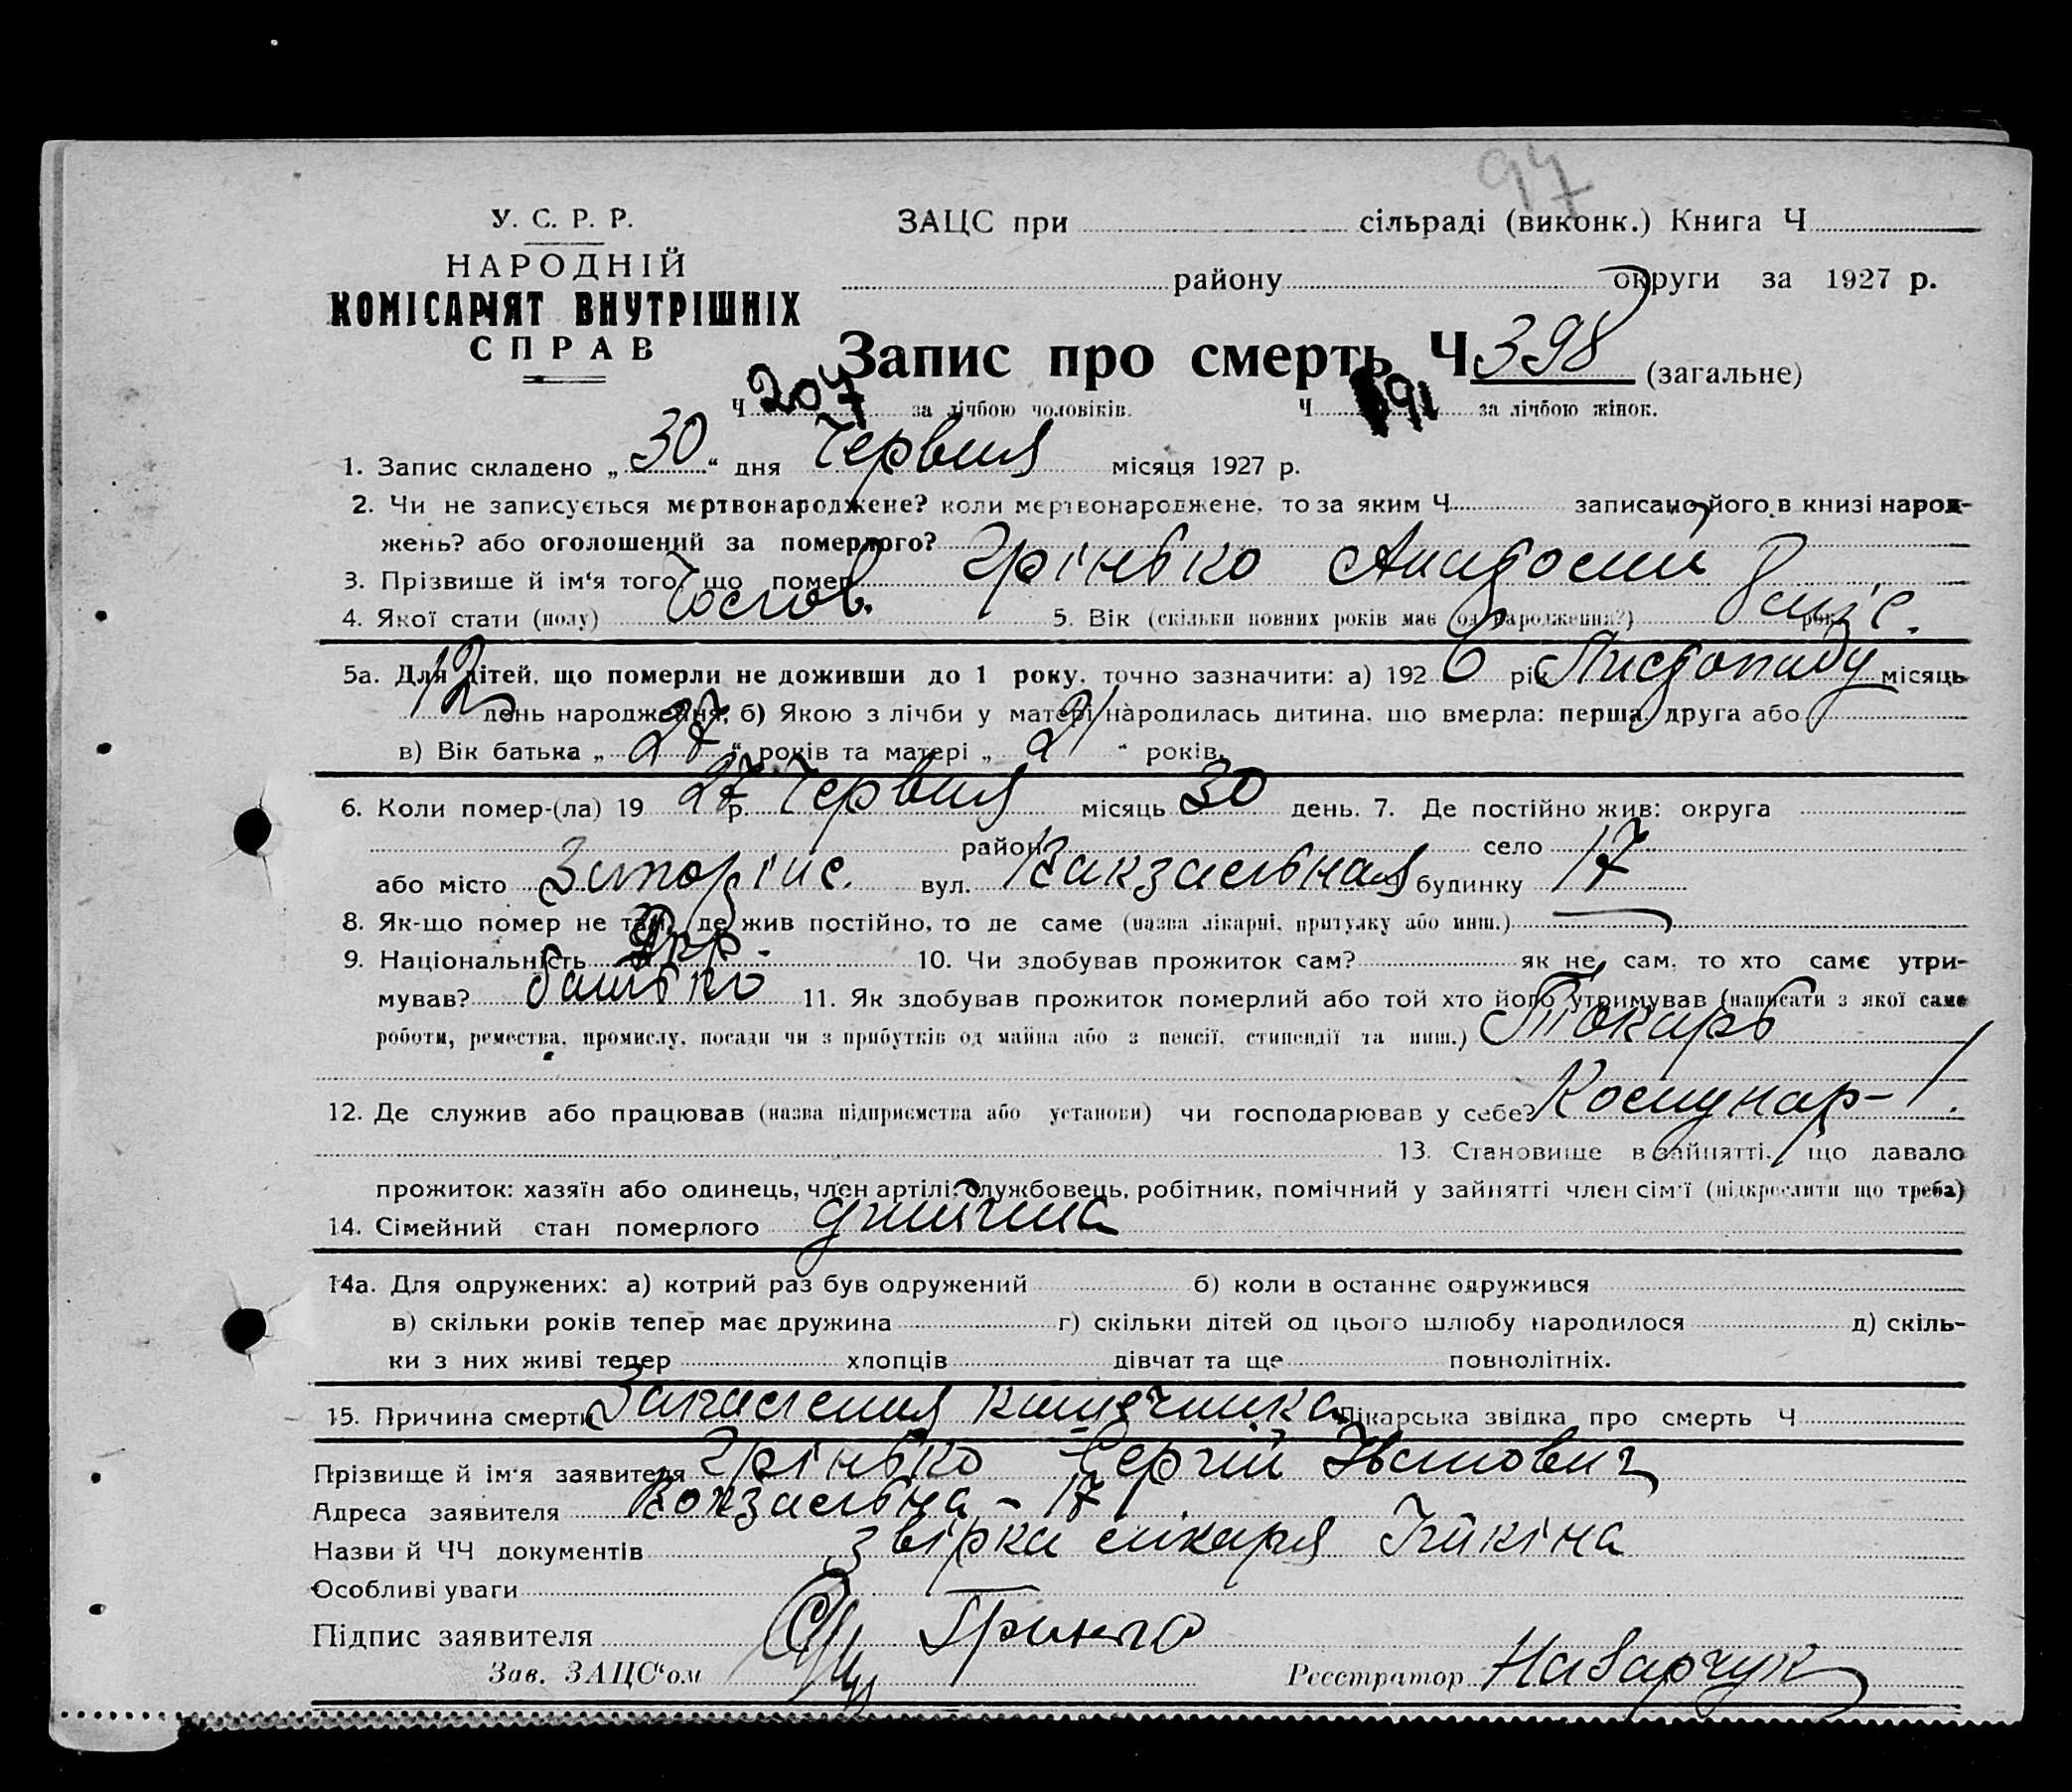 97
У. С. Р. Р.
НАРОДНІЙ
КОМІСАРІЯТ ВНУТРІШНІХ
СПРАВ
ЗАЦС при сільраді (виконк.) Книга Ч
району округи за 1927 р.
Запис про смерть Ч 398 (загальне)
Ч 207 за лічбою чоловіків. Ч 191 за лічбою жінок.
1. Запис складено „30“ дня Червня місяця 1927 р.
2. Чи не записується мертвонароджене? коли мертвонароджене, то за яким Ч записано його в книзі народ-
жень? або оголошений за померлого?
3. Прізвище й ім'я того, що помер Грінько
4. Якої стати (полу) Чолов. 5. Вік (скільки повних років має од народження?) 8 міс. рок
5а. Для дітей, що померли не доживши до 1 року, точно зазначити: а) 1926 рік Листопаду місяць
12 день народження, б) Якою з лічби у матері народилась дитина, що вмерла: перша, друга або
в) Вік батька „27“ років та матері „21“ років.
6. Коли помер-(ла) 1927 р. Червня місяць 30 день. 7. Де постійно жив: округа
район село
або місто Запоріжє. вул. Вакзальная будинку 17
8. Як-що помер не там, де жив постійно, то де саме (назва лікарні, притулку або инш.)
9. Національність Укр. 10. Чи здобував прожиток сам? як не сам, то хто саме утри-
мував? батько 11. Як здобував прожиток померлий або той хто його утримував (написати з якої саме
роботи, ремества, промислу, посади чи з прибутків од майна або з пенсії, стипендії та инш.) Токарь
12. Де служив або працював (назва підприємства або установи) чи господарював у себе? Комунар-1.
13. Становище в зайнятті, що давало
прожиток: хазяїн або одинець, член артілі, службовець, робітник, помічний у зайнятті член сім'ї (підкреслити що треба)
14. Сімейний стан померлого дитина
14а. Для одружених: а) котрий раз був одружений б) коли в останнє одружився
в) скільки років тепер має дружина г) скільки дітей од цього шлюбу народилося д) скіль-
ки з них живі тепер хлопців дівчат та ще повнолітніх.
15. Причина смерти Запаления кишечника Лікарська звідка про смерть Ч
Прізвище й ім'я заявителя Грінько Сергій Иванович
Адреса заявителя Вокзальна - 17
Назви й ЧЧ документів лікаря
Особливі уваги
Підпис заявителя Гринько
Зав. ЗАЦС'ом Реєстратор Назарчук